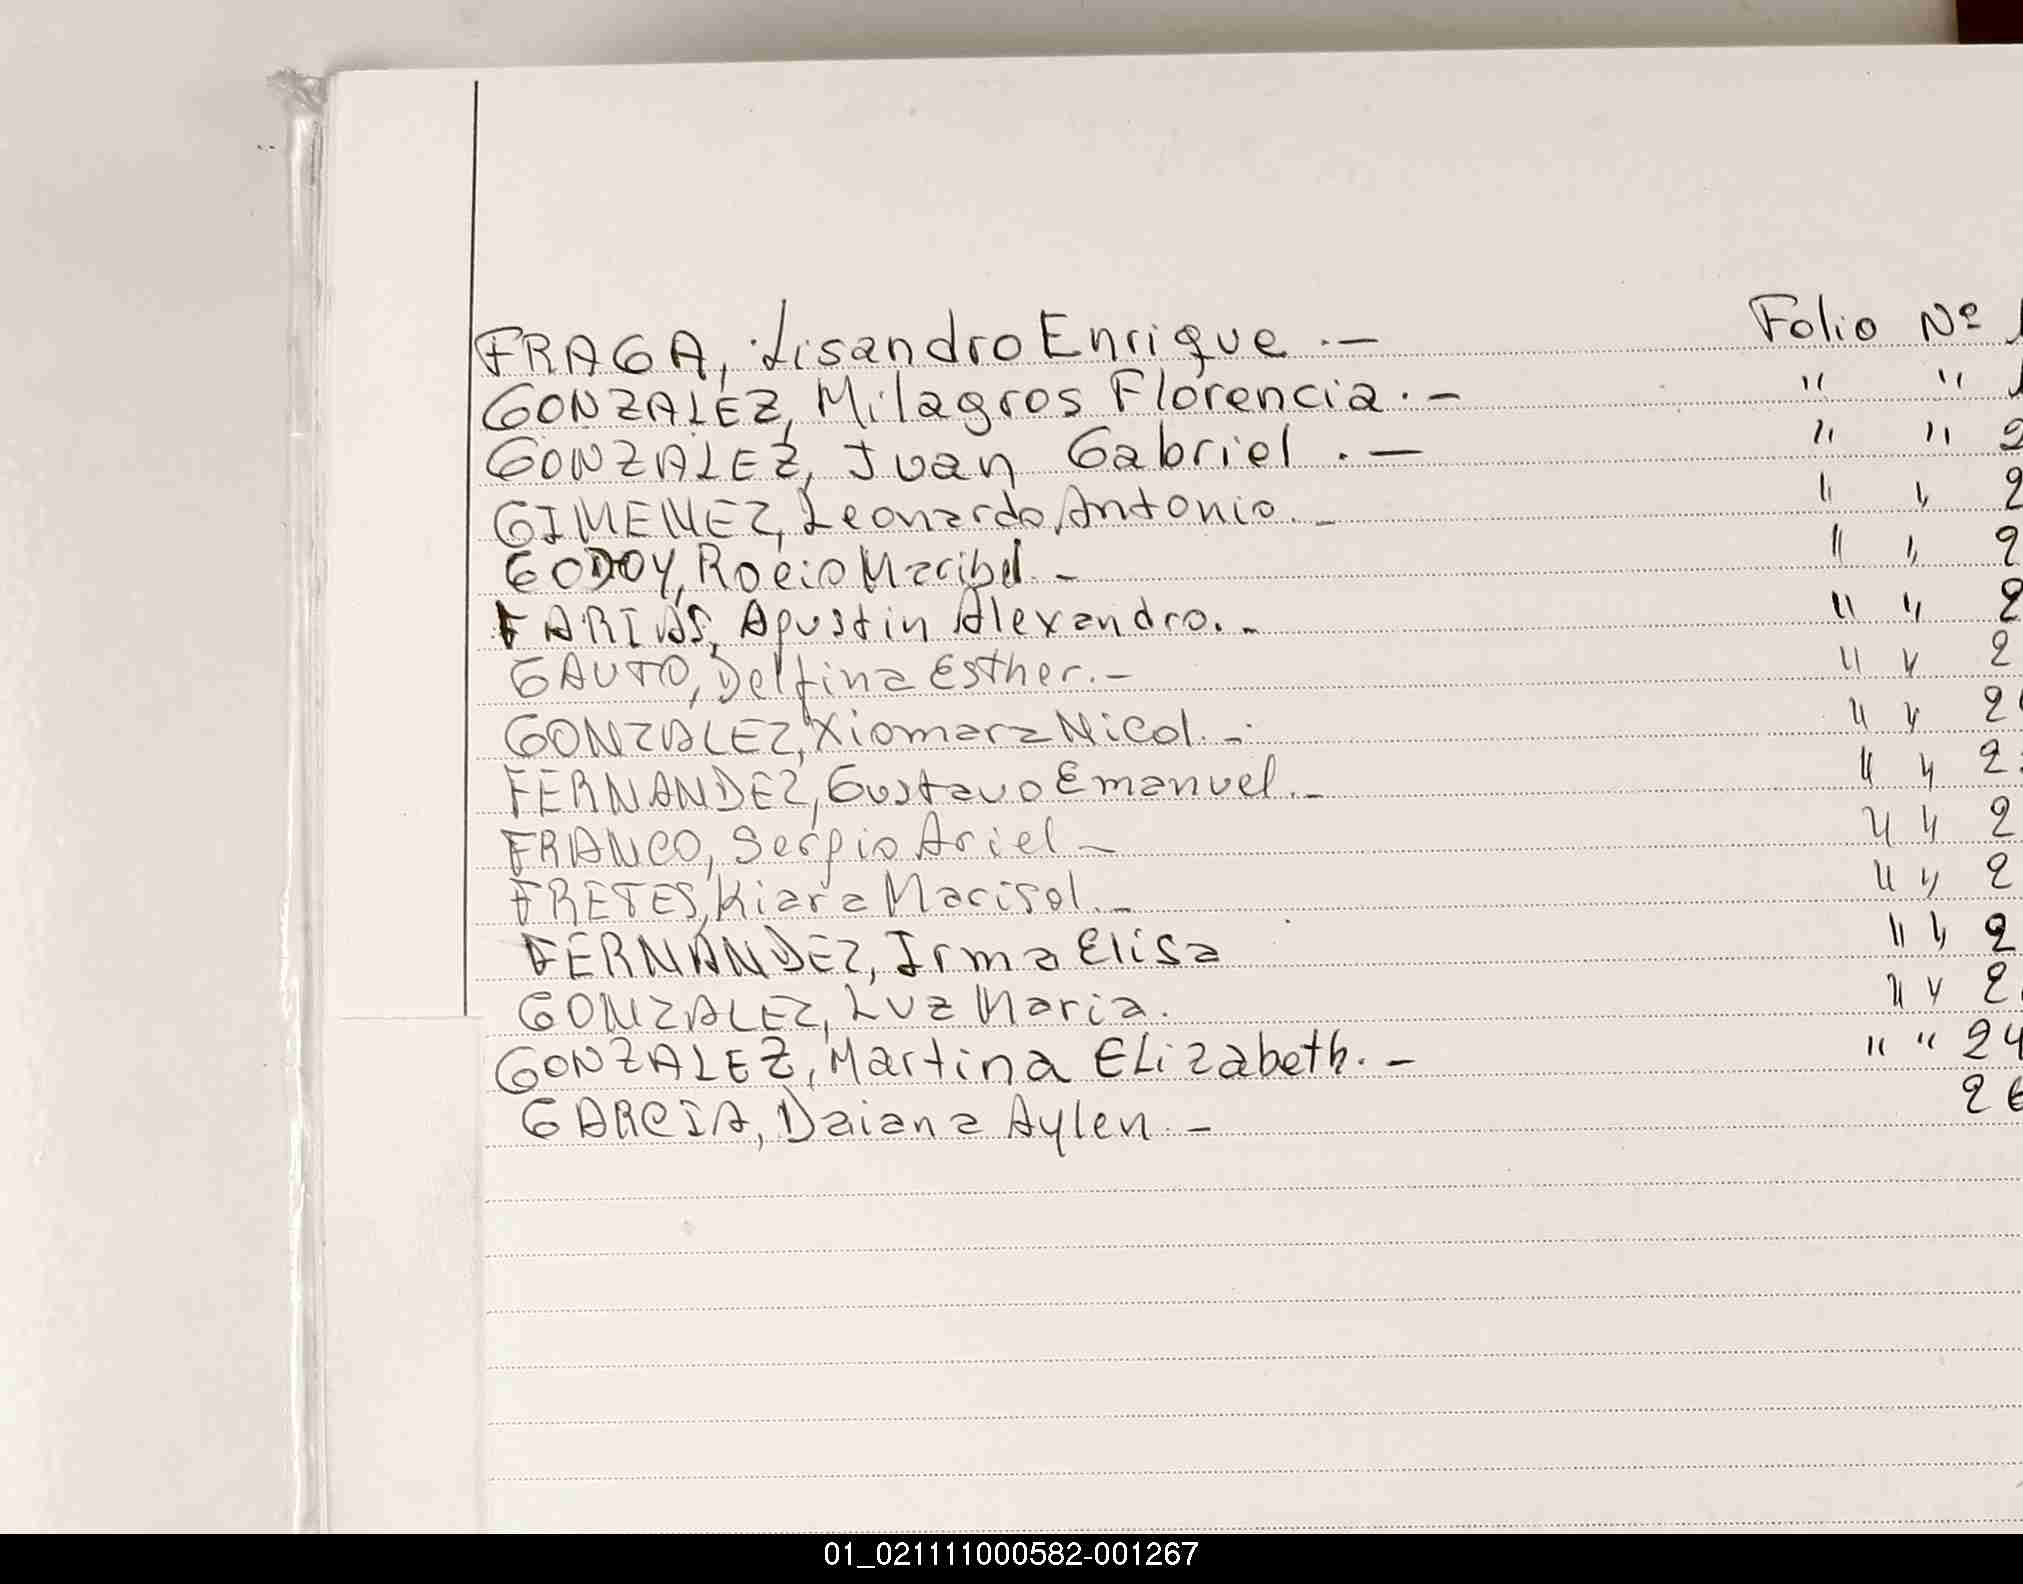 FRAGA, Lisandro Enrique .— Folio Nº
GONZALEZ, Milagros Florencia .— " "
GONZALEZ, Juan Gabriel .— " " 2
GIMENEZ, Leonardo Antonio.- " " 2
GODOY, Rocio Maribel.- " " 2
FARIAS, Agustin Alexandro.- " " 2
GAUTO, Delfina Esther.- " " 2
GONZALEZ, Xiomara Nicol.- " " 2
FERNANDEZ, Gustavo Emanuel.- " " 2
FRANCO, Sergio Ariel - " " 2
FRETES, Kiara Marisol.- " " 2
FERNANDEZ, Irma Elisa " " 2
GONZALEZ, Luz Maria. " " 2
GONZALEZ, Martina ELizabeth.- " " 24
GARCIA, Daiana Aylen.- 2
01_021111000582-001267